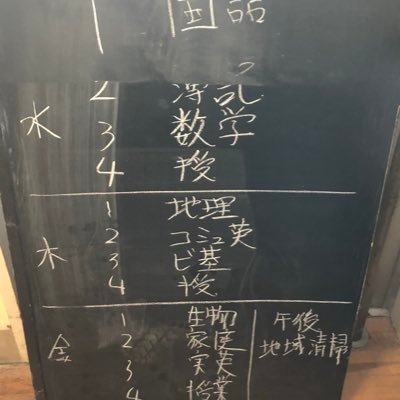 1 国語
2 薄乱
水 3 数学
4 授
1 地理
2 コミュ英
木 3 ビ基
4 授
1 生物 午後
2 家庭 地域清掃
金 3 実英
4 授業